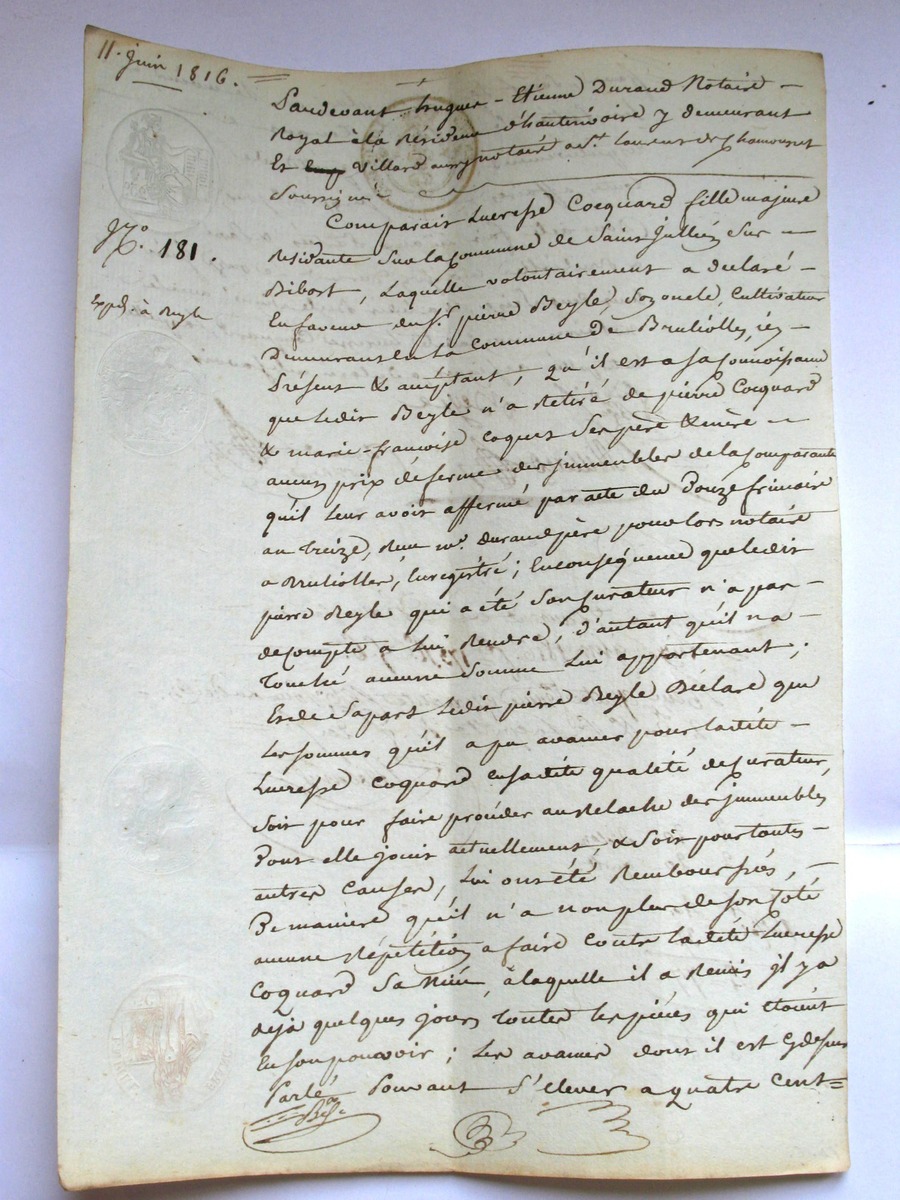 11. juin 1816.
Pardevant hugues-Etienne Durand Notaire
Royal à la Résidence d'hauterivoire y demeurant
Et Villard aussy notaire a St. Laurent de Chamousset
Soussignés
N.o 181.
Expédé. à Reyle
Comparait Lucresse Cocquard fille majure
Residante Sur la Commune de Saint Jullien Sur
Bibost, Laquelle volontairement a déclaré
En faveur du Sr. pierre Beyle, Son oncle, Cultivateur
Demeurant en la Commune de Brullolles, icy
Présent & acceptant, qu'il est a sa Connoissance
que Ledit Beyle n'a Retiré de pierre Cocquard
& marie-francoise coquet Ses père & mère
aucun prix de ferme des immeubles de la Comparante
qu'il Leur avoit affermé par acte du Douze frimaire
an treize, Reçu me. durand père pour lors notaire
a Brullolles, Enregistré; En conséquence que Ledit
pierre Beyle qui a été Son Curateur n'a pas
de compte a lui Rendre, d'autant qu'il n'a
Touché aucune Somme Lui appartenant;
Et de Sa part Ledit pierre Beyle Déclare que
Les sommes qu'il a pu avancer pour ladite
Lucresse Coquard en Sadite qualité de Curateur,
Soit pour faire procéder au Relache des immeubles
Dont elle jouit actuellement, & Soit pour toutes
autres causes, Lui ont été Remboursées,
De maniere qu'il n'a non plus de Son Coté
aucune Répétition a faire contre ladite Lucresse
Coquard Sa Nièce, à laquelle il a Remis il y a
déjà quelques jours toutes les pièces qui étoient
En Son pouvoir; Les avances dont il est Cy dessus
Parlé Pouvant S'elever a quatre Cent=